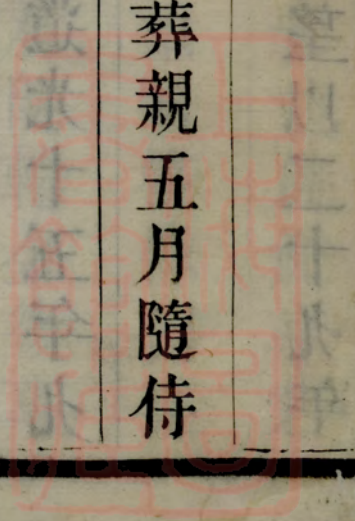 葬親五月隨侍